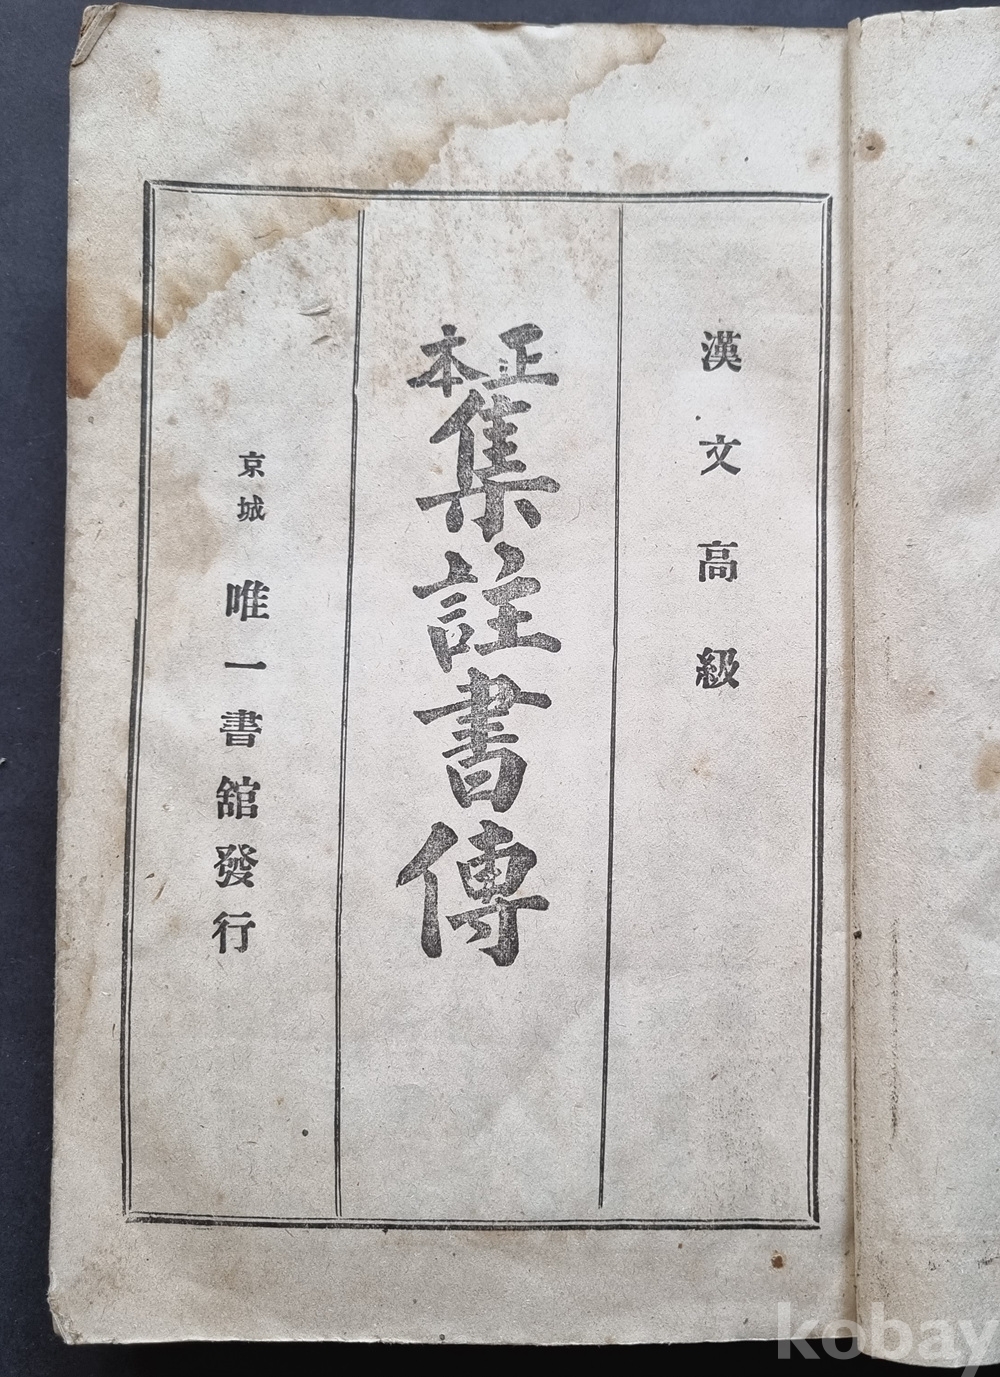 漢文高級
正本
集註書傳
京城 唯一書舘發行
kobay